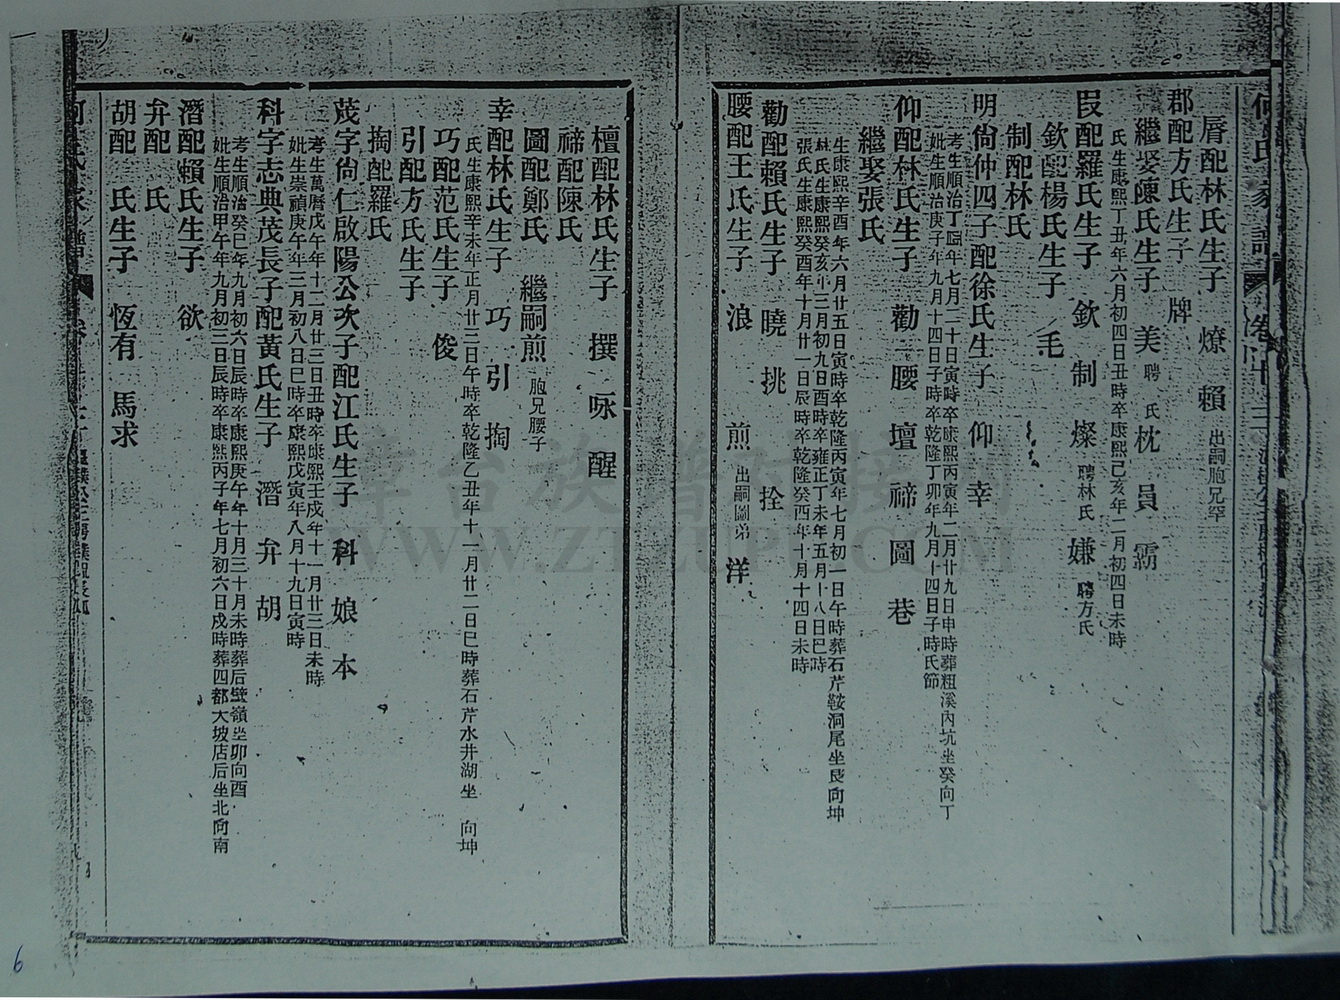 何氏家譜 卷十三
脣配林氏生子 燎 賴 出嗣胞兄罕
郡配方氏生子 牌
繼娶陳氏生子 美 聘 氏 枕 員 霸
氏生康熙丁丑年六月初四日丑時卒康熙己亥年二月初四日未時
段配羅氏生子 欽 制 燦 聘林氏 嫌 聘方氏
欽配楊氏生子 毛
制配林氏
明尙仲四子配徐氏生子 仰 幸
考生順治丁 年七月二十日寅時卒康熙丙寅年二月廿九日申時葬粗溪內坑坐癸向丁
妣生順治庚子年九月十四日子時卒乾隆丁卯年九月十四日子時氏節
仰配林氏生子 勸 腰 壇 禘 圖 巷
繼娶張氏
生康熙辛酉年六月廿五日寅時卒乾隆丙寅年七月初一日午時葬石芹鞍洞尾坐艮向坤
林氏生康熙癸亥年三月初九日酉時卒雍正丁未年五月十八日巳時
張氏生康熙癸酉年十月廿一日辰時卒乾隆癸酉年十月十四日未時
勸配賴氏生子 曉 挑 拴
腰配王氏生子 浪 煎 出嗣圖弟 洋
檀配林氏生子 撰 咏 醒
禘配陳氏
圖配鄭氏 繼嗣煎 胞兄腰子
幸配林氏生子 巧 引 掏
氏生康熙辛未年正月廿三日午時卒乾隆乙丑年十一月廿二日巳時葬石芹水井湖坐 向坤
巧配范氏生子 俊
引配方氏生子
掏配羅氏
茂字尙仁啟陽公次子配江氏生子 科 娘 本
考生萬曆戊午年十二月廿三日丑時卒康熙壬戌年十一月廿三日未時
妣生崇禎庚午年三月初八日巳時卒康熙戊寅年八月十九日寅時
科字志典茂長子配黃氏生子 潛 弁 胡
考生順治癸巳年九月初六日辰時卒康熙庚午年十月三十日未時葬后壁嶺坐卯向酉
妣生順治甲午年九月初三日辰時卒康熙丙子年七月初六日戌時葬四都大坡店后坐北向南
潛配賴氏生子 欲
弁配 氏
胡配 氏生子 恆有 馬求
何氏家譜
漳台族譜對接網
WWW.ZTZUPU.COM
6